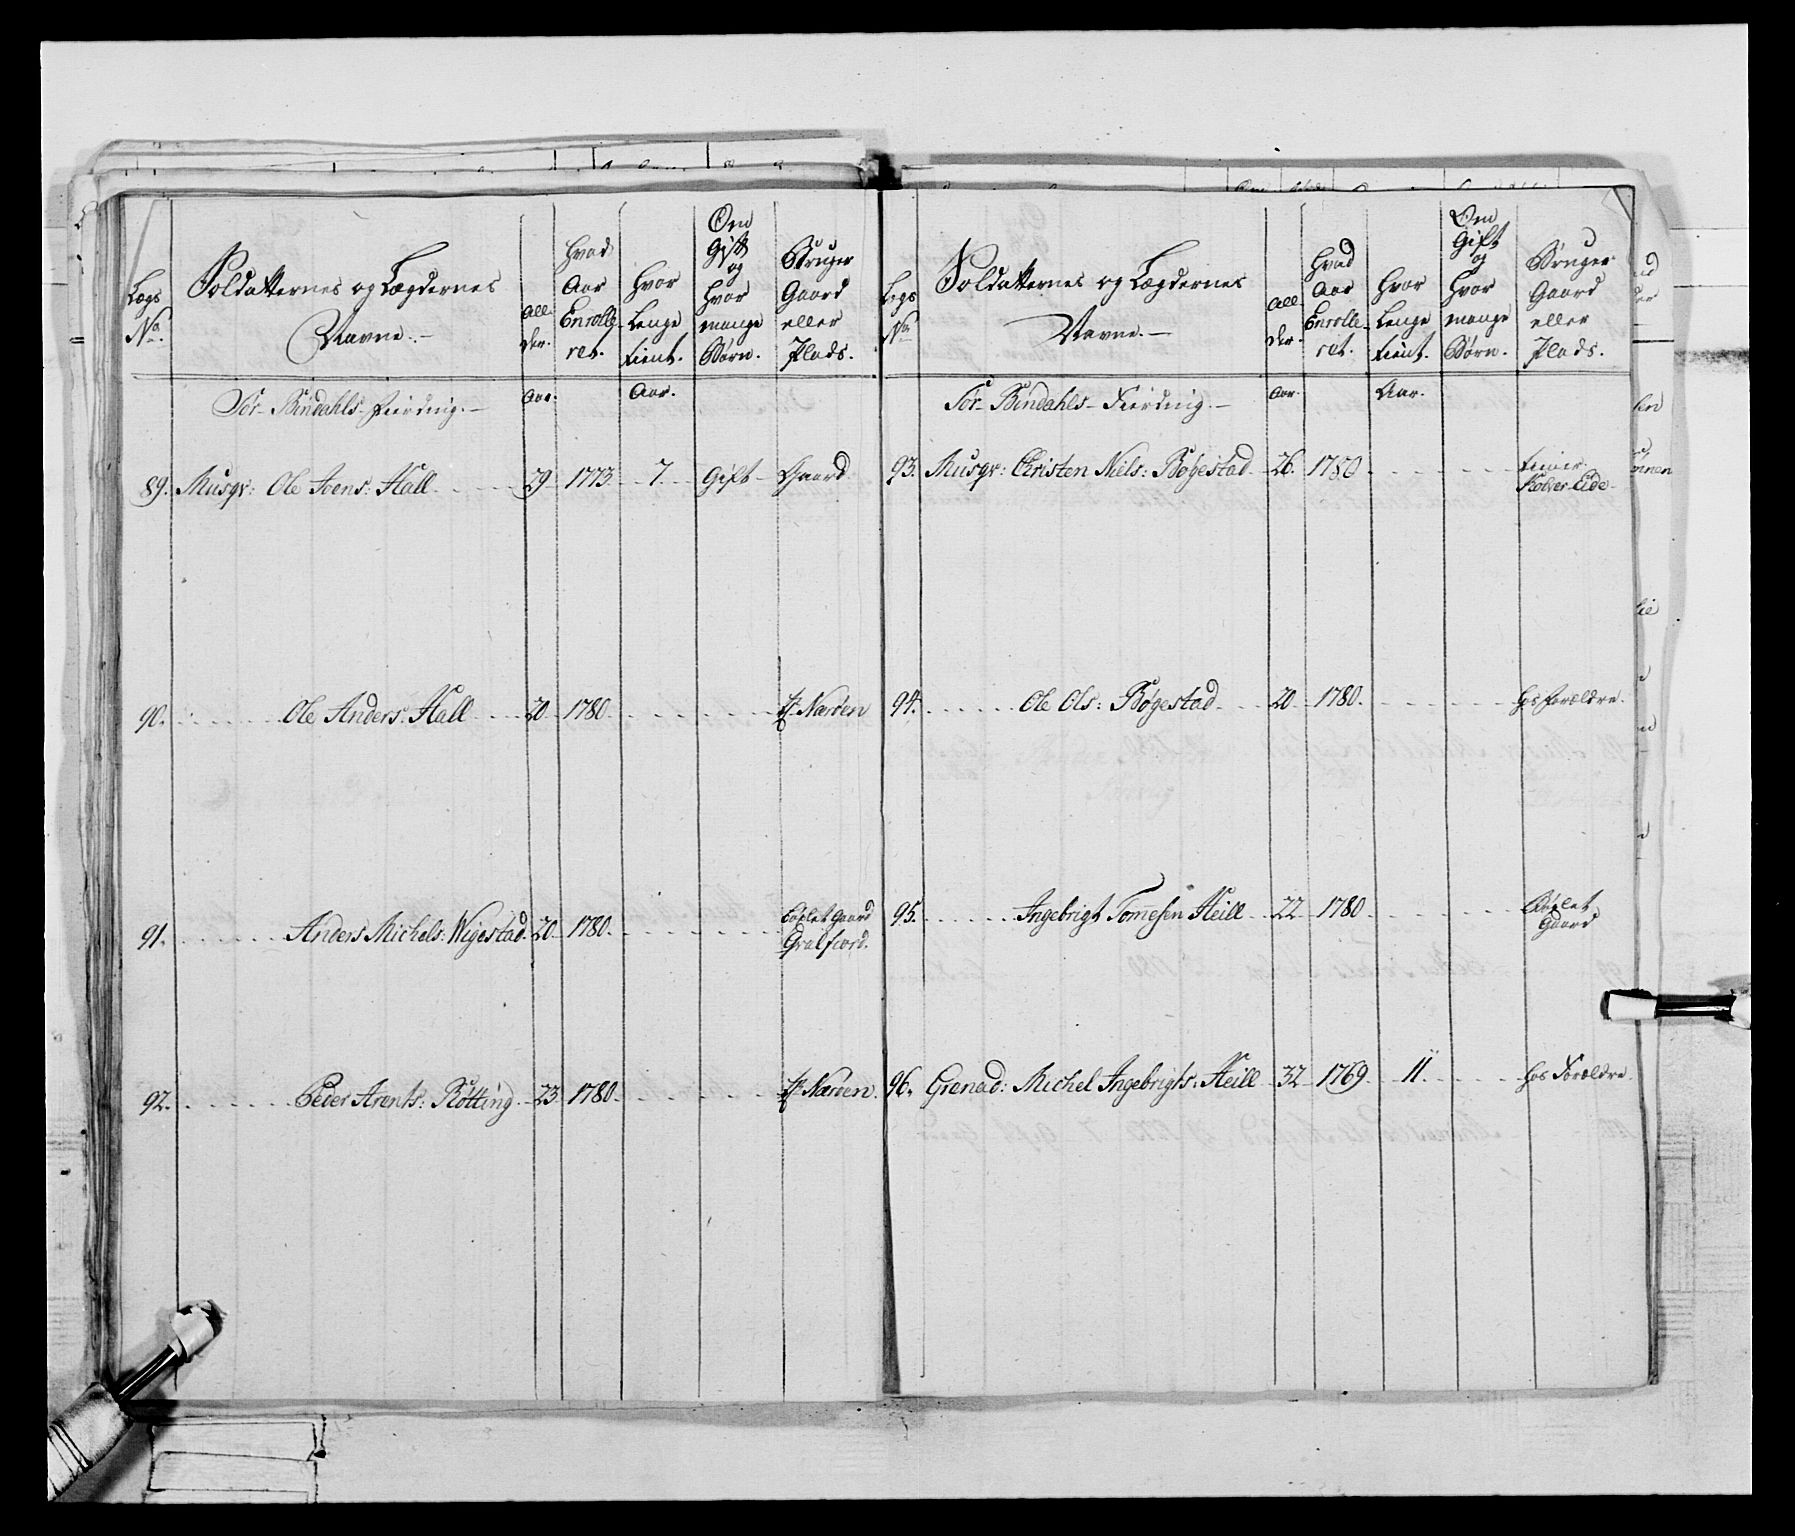 Legs No.
Soldatternes og Lægdernes Navne.
All der.
Hvad Aar Enrolle ret.
Hvor Lenge tient.
Om Gift og Hvor mange Børn.
Bruger Gaard eller Plads.
Aar.
Aar.
Sør-Bindahls-Fierding.
89. Musqr: Ole Joens: Hall 29 1773 7. Gift Gaard
90. Ole Anders: Hall 20 1780. Nærøen
91. Anders Michels: Wigestad. 20 1780. Gaard
92. Peder Arents: Røtting. 23 1780. Nærøen.
Legs No.
Soldatternes og Lægdernes Navne.
All der.
Hvad Aar Enrolle ret.
Hvor Lenge tient.
Om Gift og Hvor mange Børn.
Bruger Gaard eller Plads.
Aar.
Aar.
Sør-Bindahls-Fierding.
93. Musqr: Christen Niels: Bøgestad 26. 1780 tiener
Kolver-Eide
94. Ole Ols: Bøgestad. 20 1780. hos Forældre.
95. Ingebrigt Tomesen Heill 22 1780
Gaard
96. Grenad: Michel Ingebrigts: Heill 32 1769 11. hos Forældre.